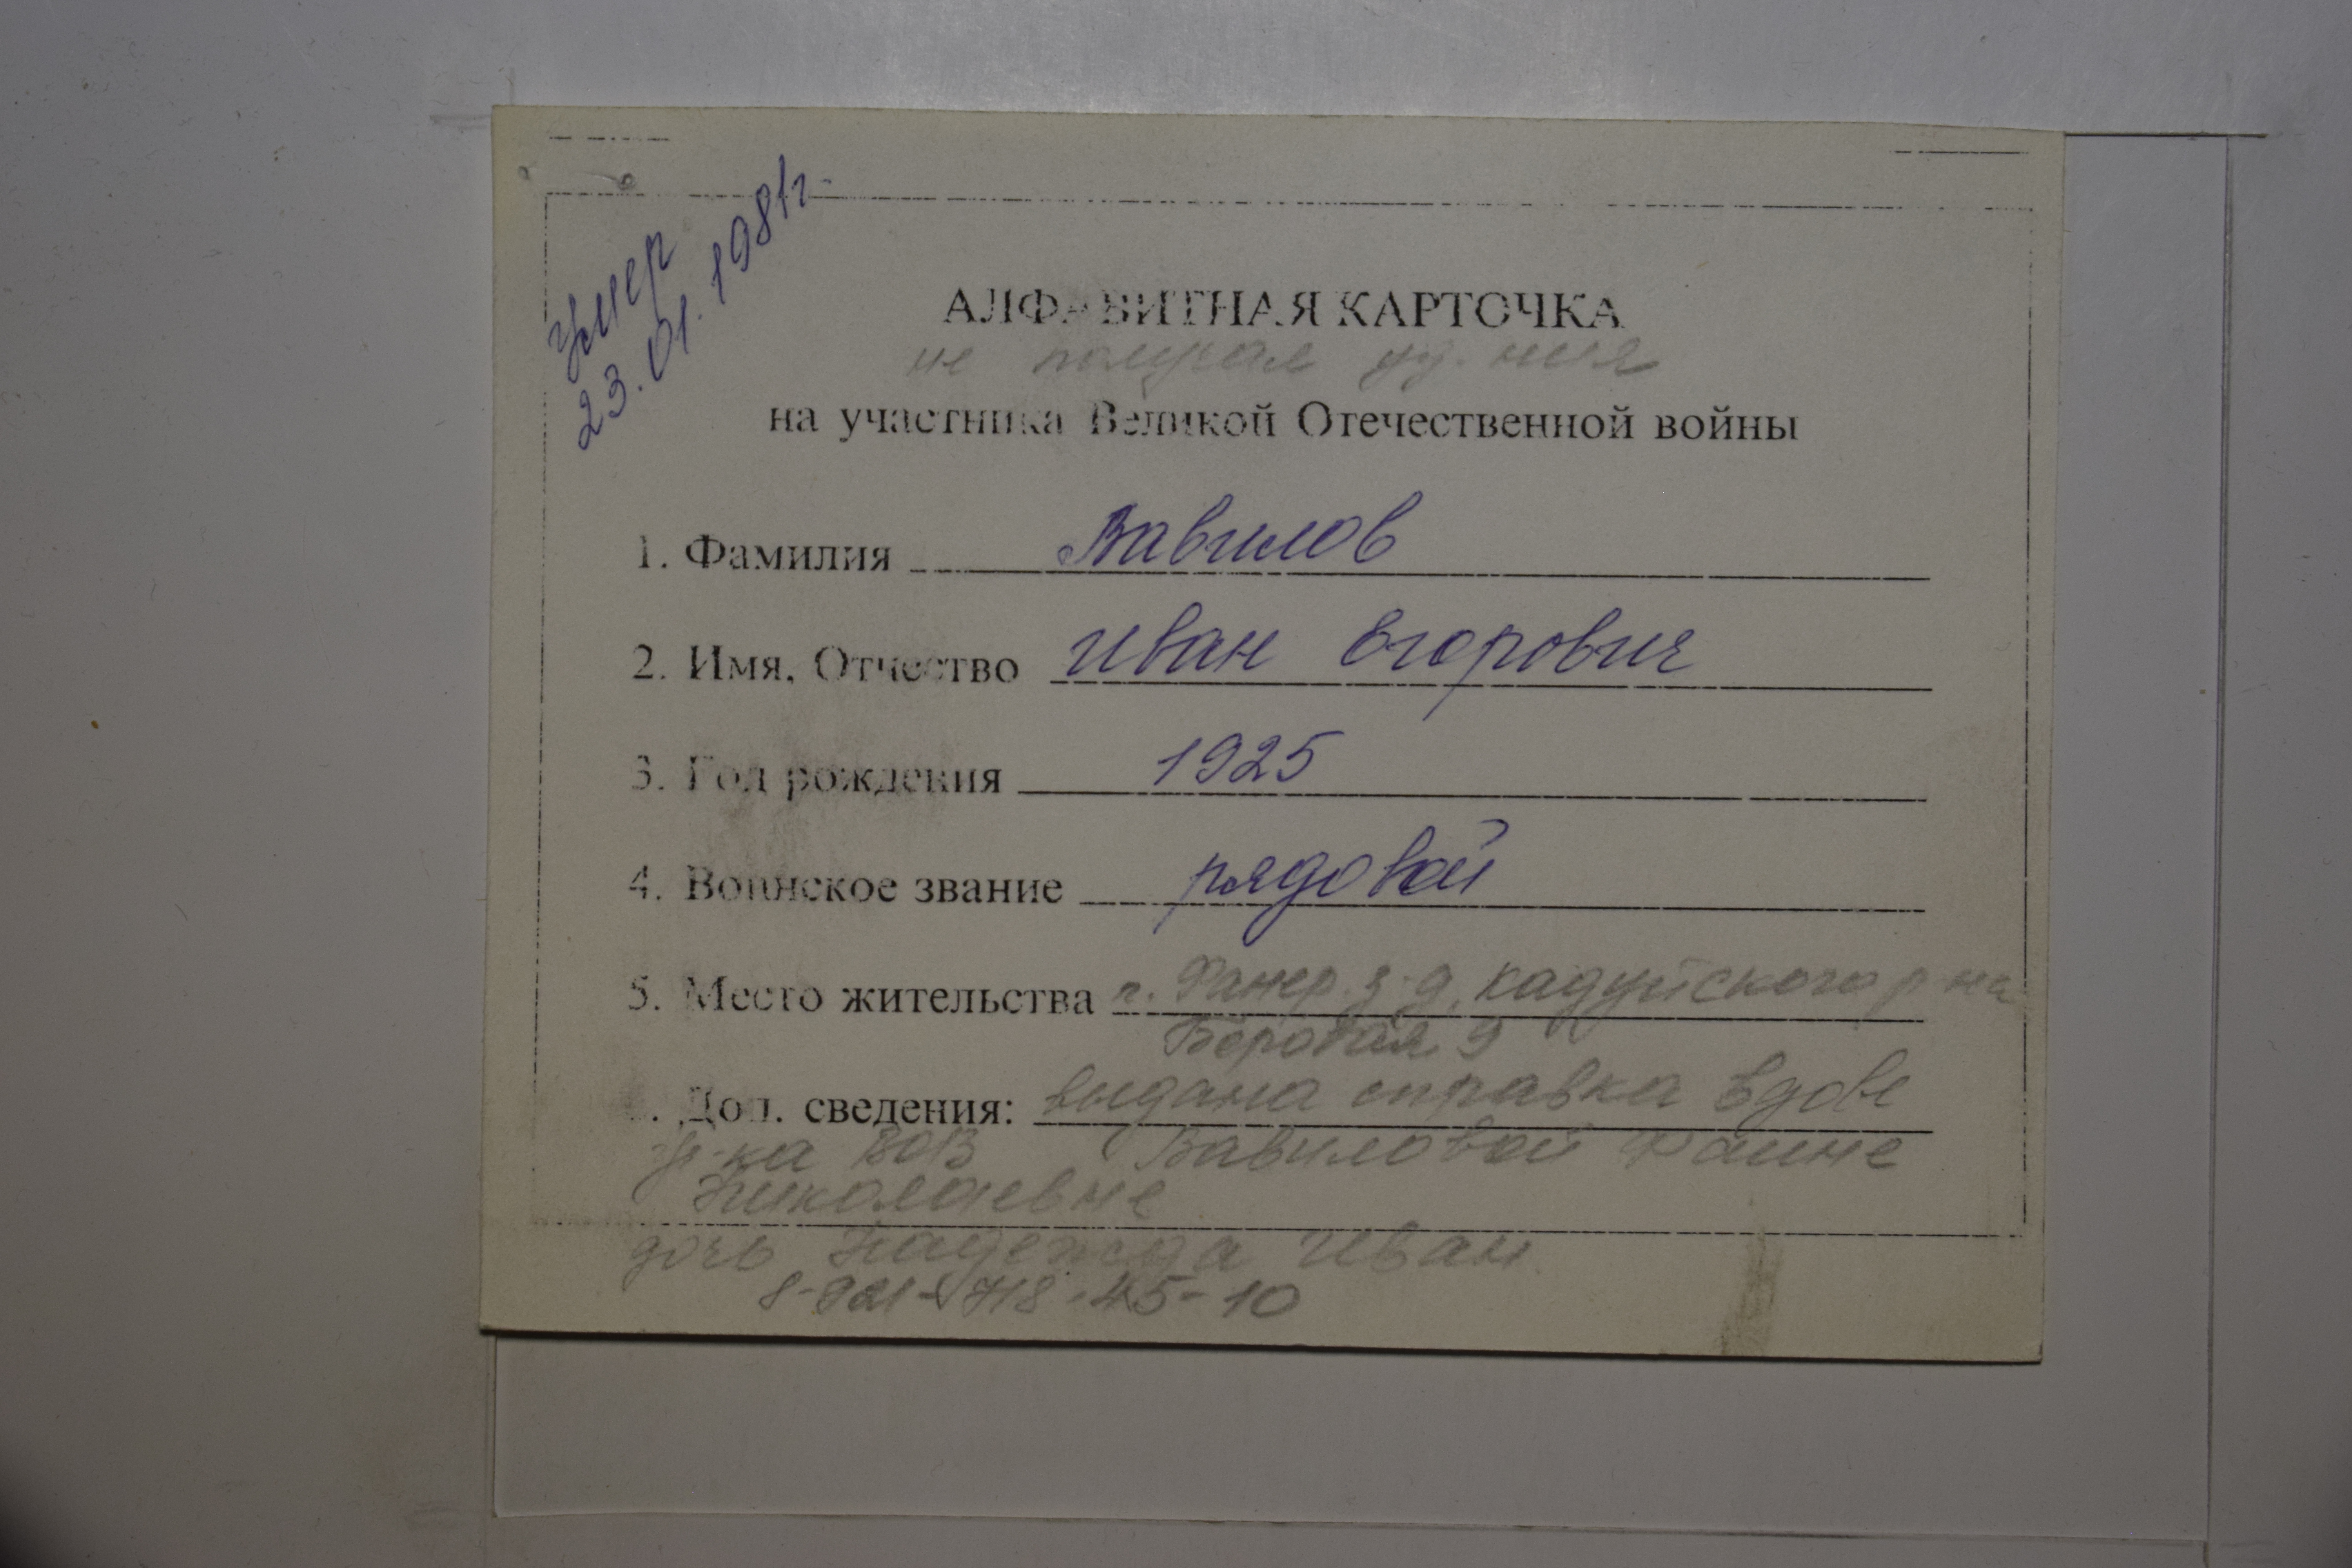 умер
23.01.1981г.
АЛФАВИТНАЯ КАРТОЧКА
не получал уд-ния
на участника Великой Отечественной войны
1. Фамилия Вавилов
2. Имя, Отчество Иван Егорович
3. Год рождения 1925
4. Воинское звание рядовой
5. Место жительства п. Фанер. з-д, Кадуйского р-на
Боровая 9
. Доп. сведения: выдана справка вдове
уч-ка ВОВ Вавиловой Фаине
Николаевне
дочь Надежда Иван.
8-921-718-45-10